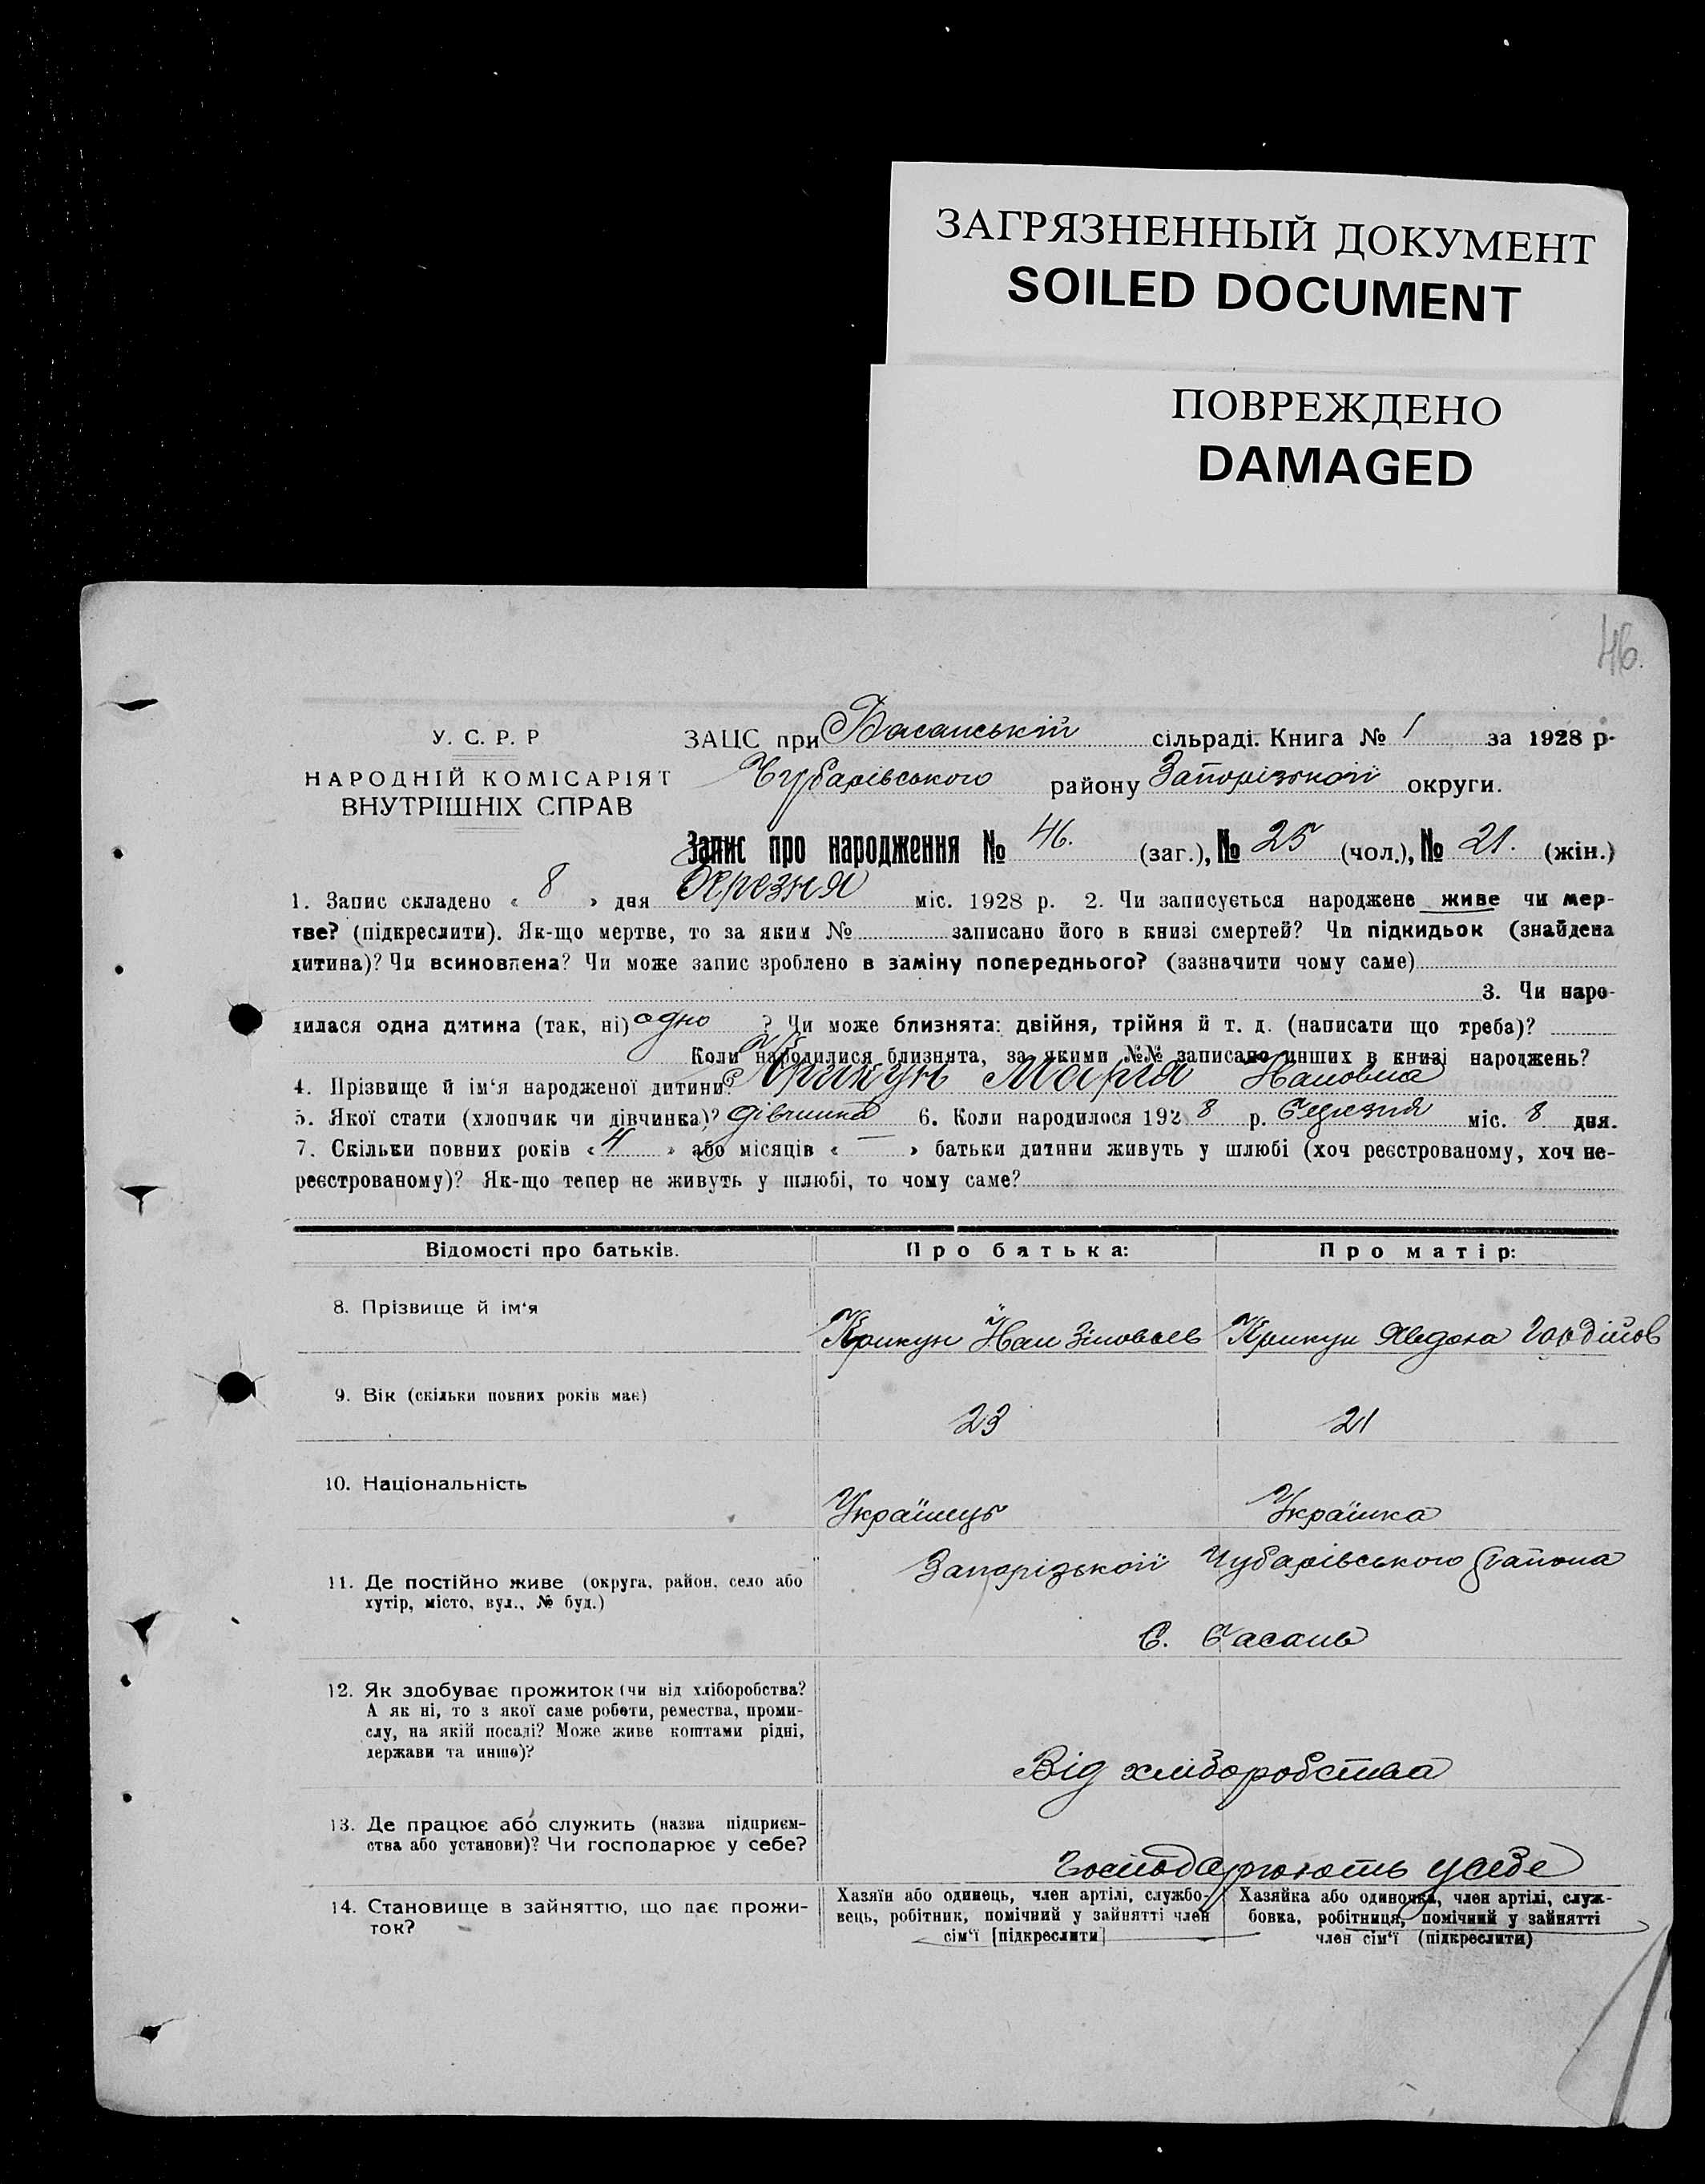 ЗАГРЯЗНЕННЫЙ ДОКУМЕНТ
SOILED DOCUMENT
ПОВРЕЖДЕНО
DAMAGED
46.
У. С. Р. Р
НАРОДНІЙ КОМІСАРІЯТ
ВНУТРІШНІХ СПРАВ
ЗАЦС при Басанській сільраді. Книга № 1 за 1928 р.
Чубарівського району Запорізької округи.
Запис про народження № 46. (заг.), № 25 (чол.), № 21. (жін.)
1. Запис складено « 8 » дня березня міс. 1928 р. 2. Чи записується народжене живе чи мер-
тве? (підкреслити). Як-що мертве, то за яким № записано його в книзі смертей? Чи підкидьок (знайдена
дитина)? Чи всиновлена? Чи може запис зроблено в заміну попереднього? (зазначити чому саме)
3. Чи наро-
дилася одна дитина (так, ні) одно ? Чи може близнята: двійня, трійня й т. д. (написати що треба)?
Коли народилися близнята, за якими №№ записано инших в книзі народжень?
4. Прізвище й ім‘я народженої дитини? Крикун Марія
5. Якої стати (хлопчик чи дівчинка)? дівчинка 6. Коли народилося 1928 р. березня міс. 8 дня.
7. Скільки повних років « 4 » або місяців « — » батьки дитини живуть у шлюбі (хоч реєстрованому, хоч не-
реєстрованому)? Як-що тепер не живуть у шлюбі, то чому саме?
Відомості про батьків.
Про батька:
Про матір:
8. Прізвище й ім‘я
Крикун
Крикун Явдоха
9. Вік (скільки повних років має)
23
21
10. Національність
Українець
Українка
11. Де постійно живе (округа, район, село або
хутір, місто, вул., № буд.)
Запорізької Чубарівського района
С. Басань
12. Як здобуває прожиток (чи від хліборобства?
А як ні, то з якої саме роботи, ремества, проми-
слу, на якій посаді? Може живе коштами рідні,
держави та инше)?
Від хліборобства
13. Де працює або служить (назва підприєм-
ства або установи)? Чи господарює у себе?
Господарюють у себе
14. Становище в зайняттю, що дає прожи-
ток?
Хазяїн або одинець, член артілі, службо-
вець, робітник, помічний у зайнятті член
сім‘ї [підкреслити]
Хазяйка або одиночка, член артілі, служ-
бовка, робітниця, помічний у зайнятті
член сім‘ї (підкреслити)